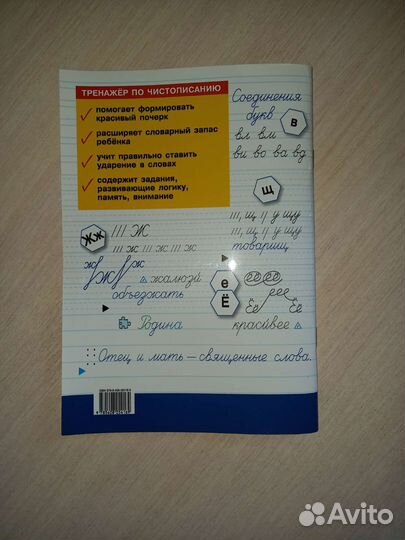 ТРЕНАЖЁР ПО ЧИСТОПИСАНИЮ
помогает формировать
красивый почерк
расширяет словарный запас
ребёнка
учит правильно ставить
ударение в словах
содержит задания,
развивающие логику,
память, внимание
Соединения
букв
в
вл вм
ви во ва вд
щ
щ у щу
щ у щу
товарищ
Жж
Ж
ж ж ж
ж Ж ж
жалюзи́
объезжать
е
Ё
ее ее
Её Её
Родина
краси́вее
Отец и мать – священные слова.
Avito